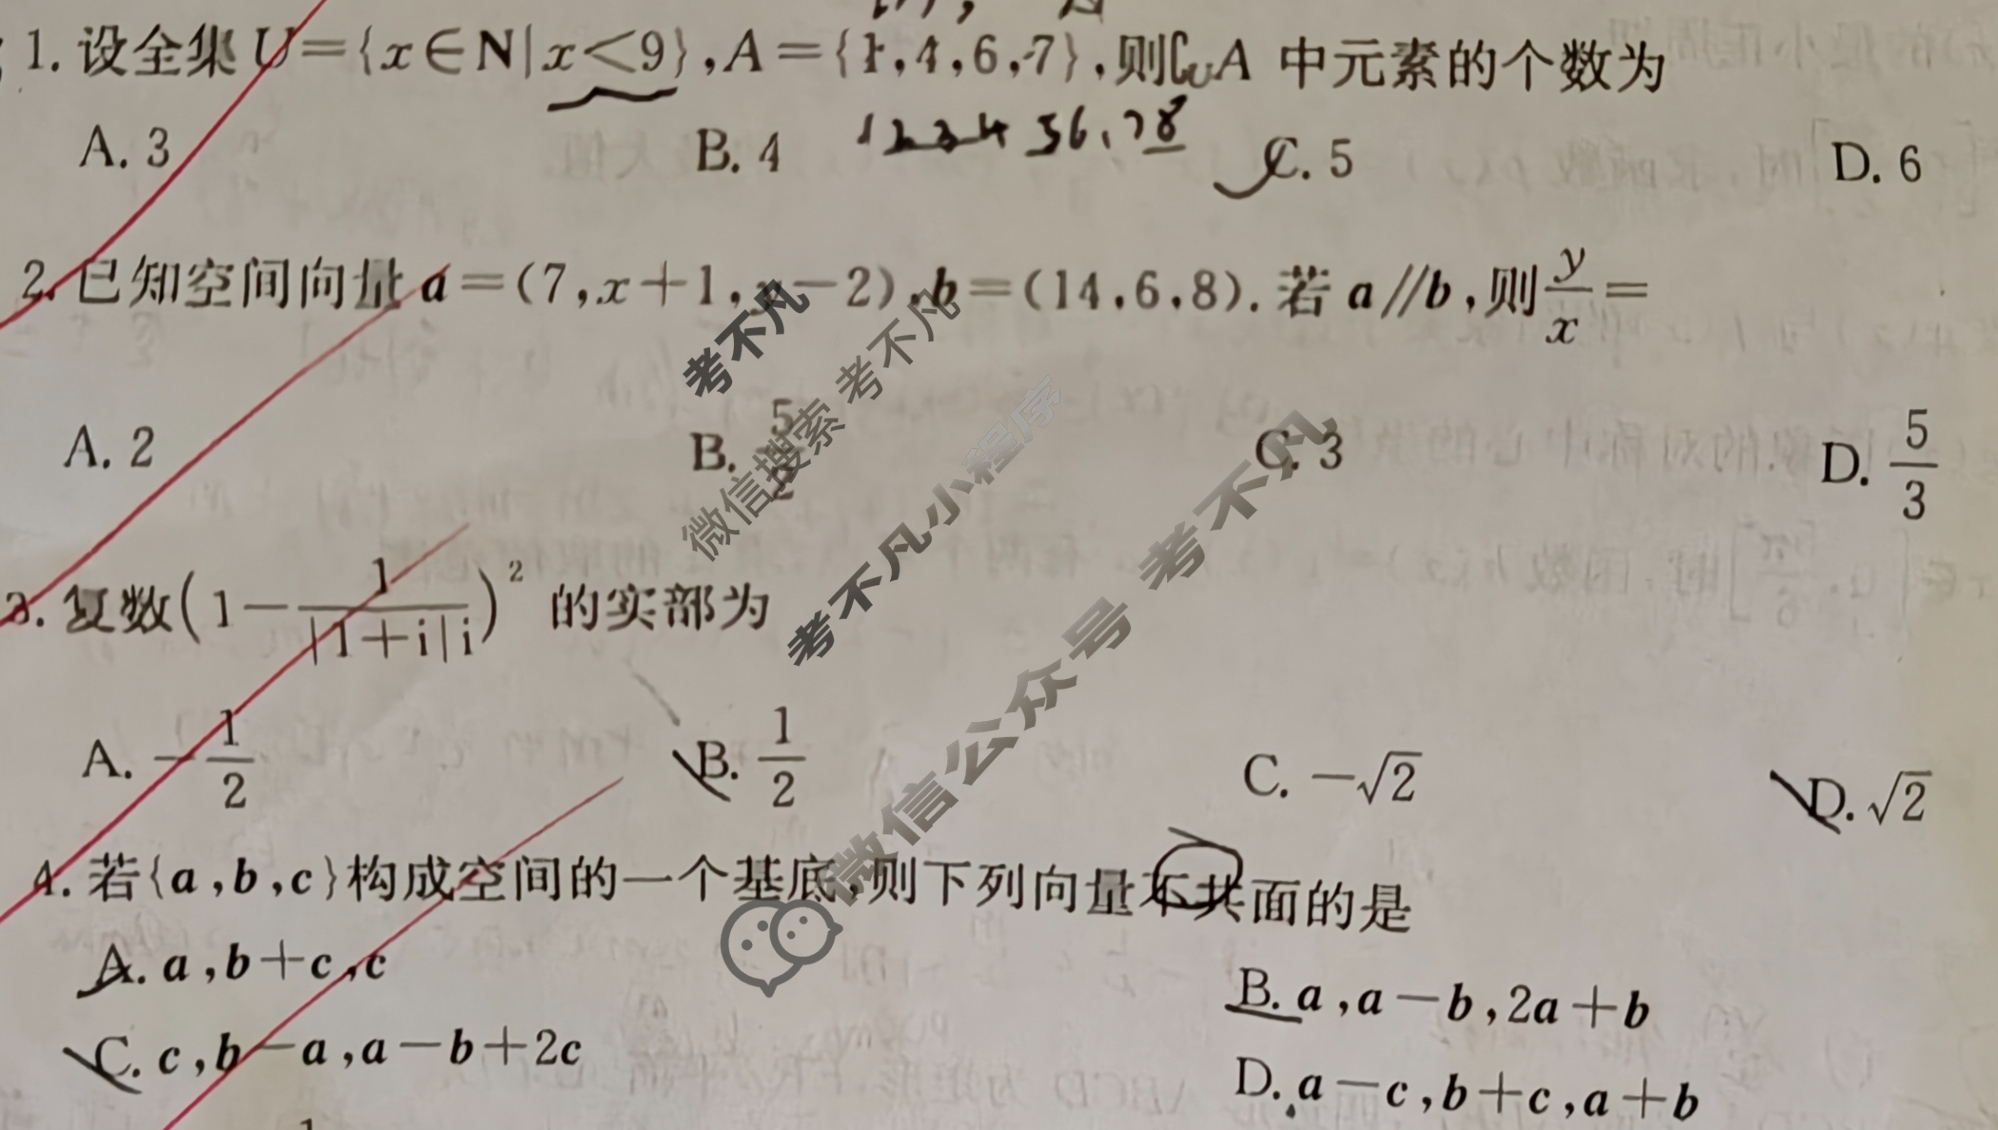 1. 设全集U={x∈N|x<9},A={1,4,6,7},则∁UA 中元素的个数为
1 2 3 4 5 6, 7 8
A. 3 B. 4 C. 5 D. 6
2. 已知空间向量 a=(7,x+1,y-2),b=(14,6,8). 若 a∥b,则y/x=
A. 2 B. 5/2 C. 3 D. 5/3
3. 复数(1-1/(|1+i|i))² 的实部为
A. -1/2 B. 1/2 C. -√2 D. √2
4. 若{a,b,c}构成空间的一个基底,则下列向量不共面的是
A. a,b+c,c B. a,a-b,2a+b
C. c,b-a,a-b+2c D. a-c,b+c,a+b
考不凡
微信搜索 考不凡
考不凡小程序
微信公众号 考不凡